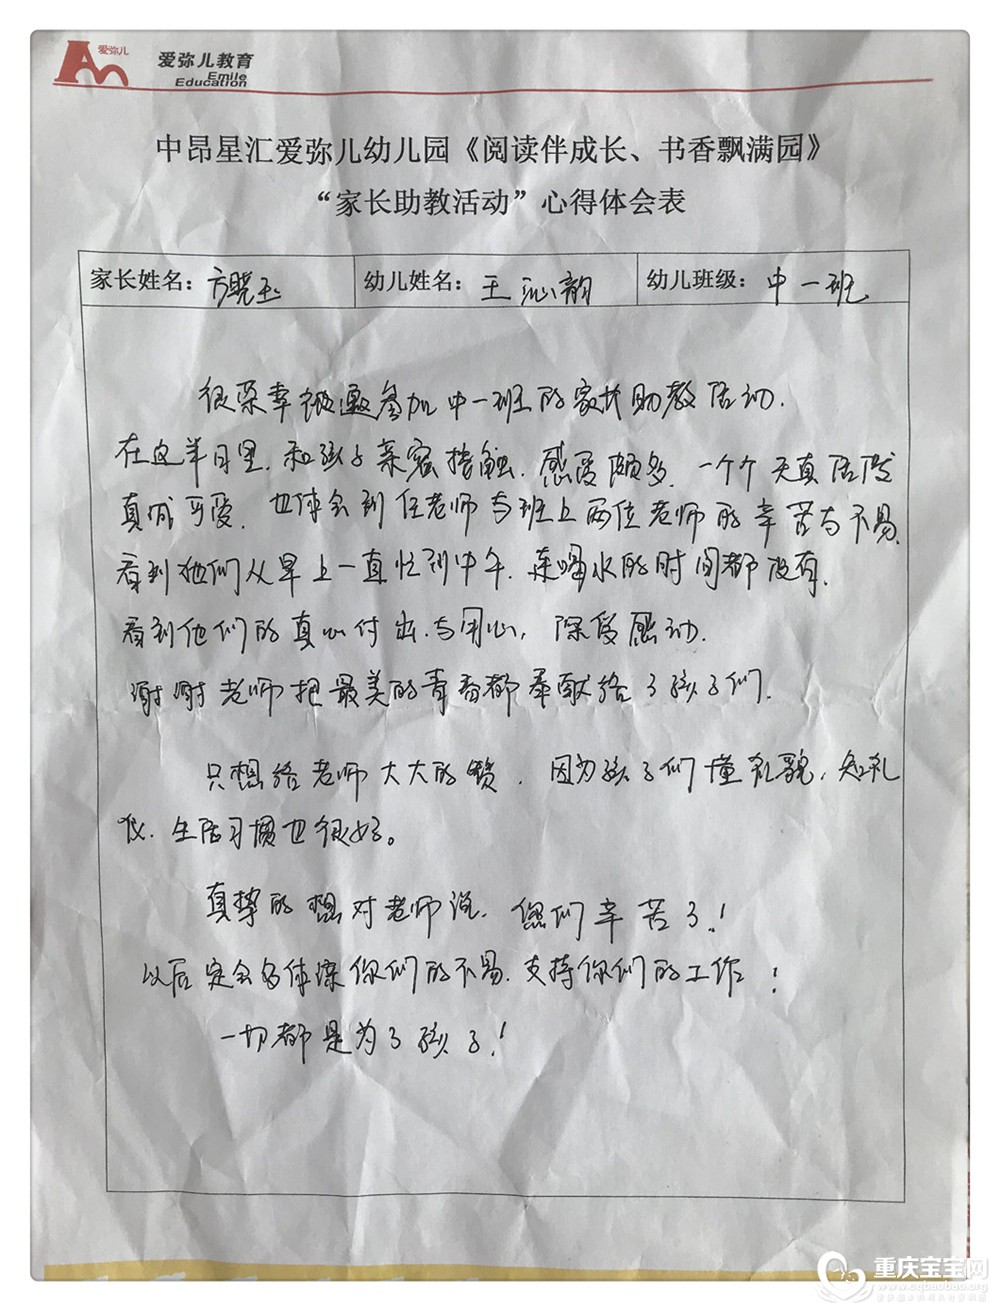 爱弥儿
爱弥儿教育
Emile
Education
中昂星汇爱弥儿幼儿园《阅读伴成长、书香飘满园》
“家长助教活动”心得体会表
家长姓名：方晓玉 幼儿姓名：王沁韵 幼儿班级：中一班
很荣幸被邀参加中一班的家长助教活动.
在这半日里.和孩子亲密接触.感受颇多.一个个天真活泼
真诚可爱.也体会到任老师与班上两位老师的辛苦与不易.
看到他们从早上一直忙到中午.连喝水的时间都没有.
看到他们的真心付出.与用心,深受感动.
谢谢老师把最美的青春都奉献给了孩子们.
只想给老师大大的赞.因为孩子们懂礼貌.知礼
仪.生活习惯也很好。
真挚的想对老师说.您们辛苦了!
以后定会多体谅你们的不易.支持你们的工作!
一切都是为了孩子!
重庆宝宝网
www.cqbaobao.com